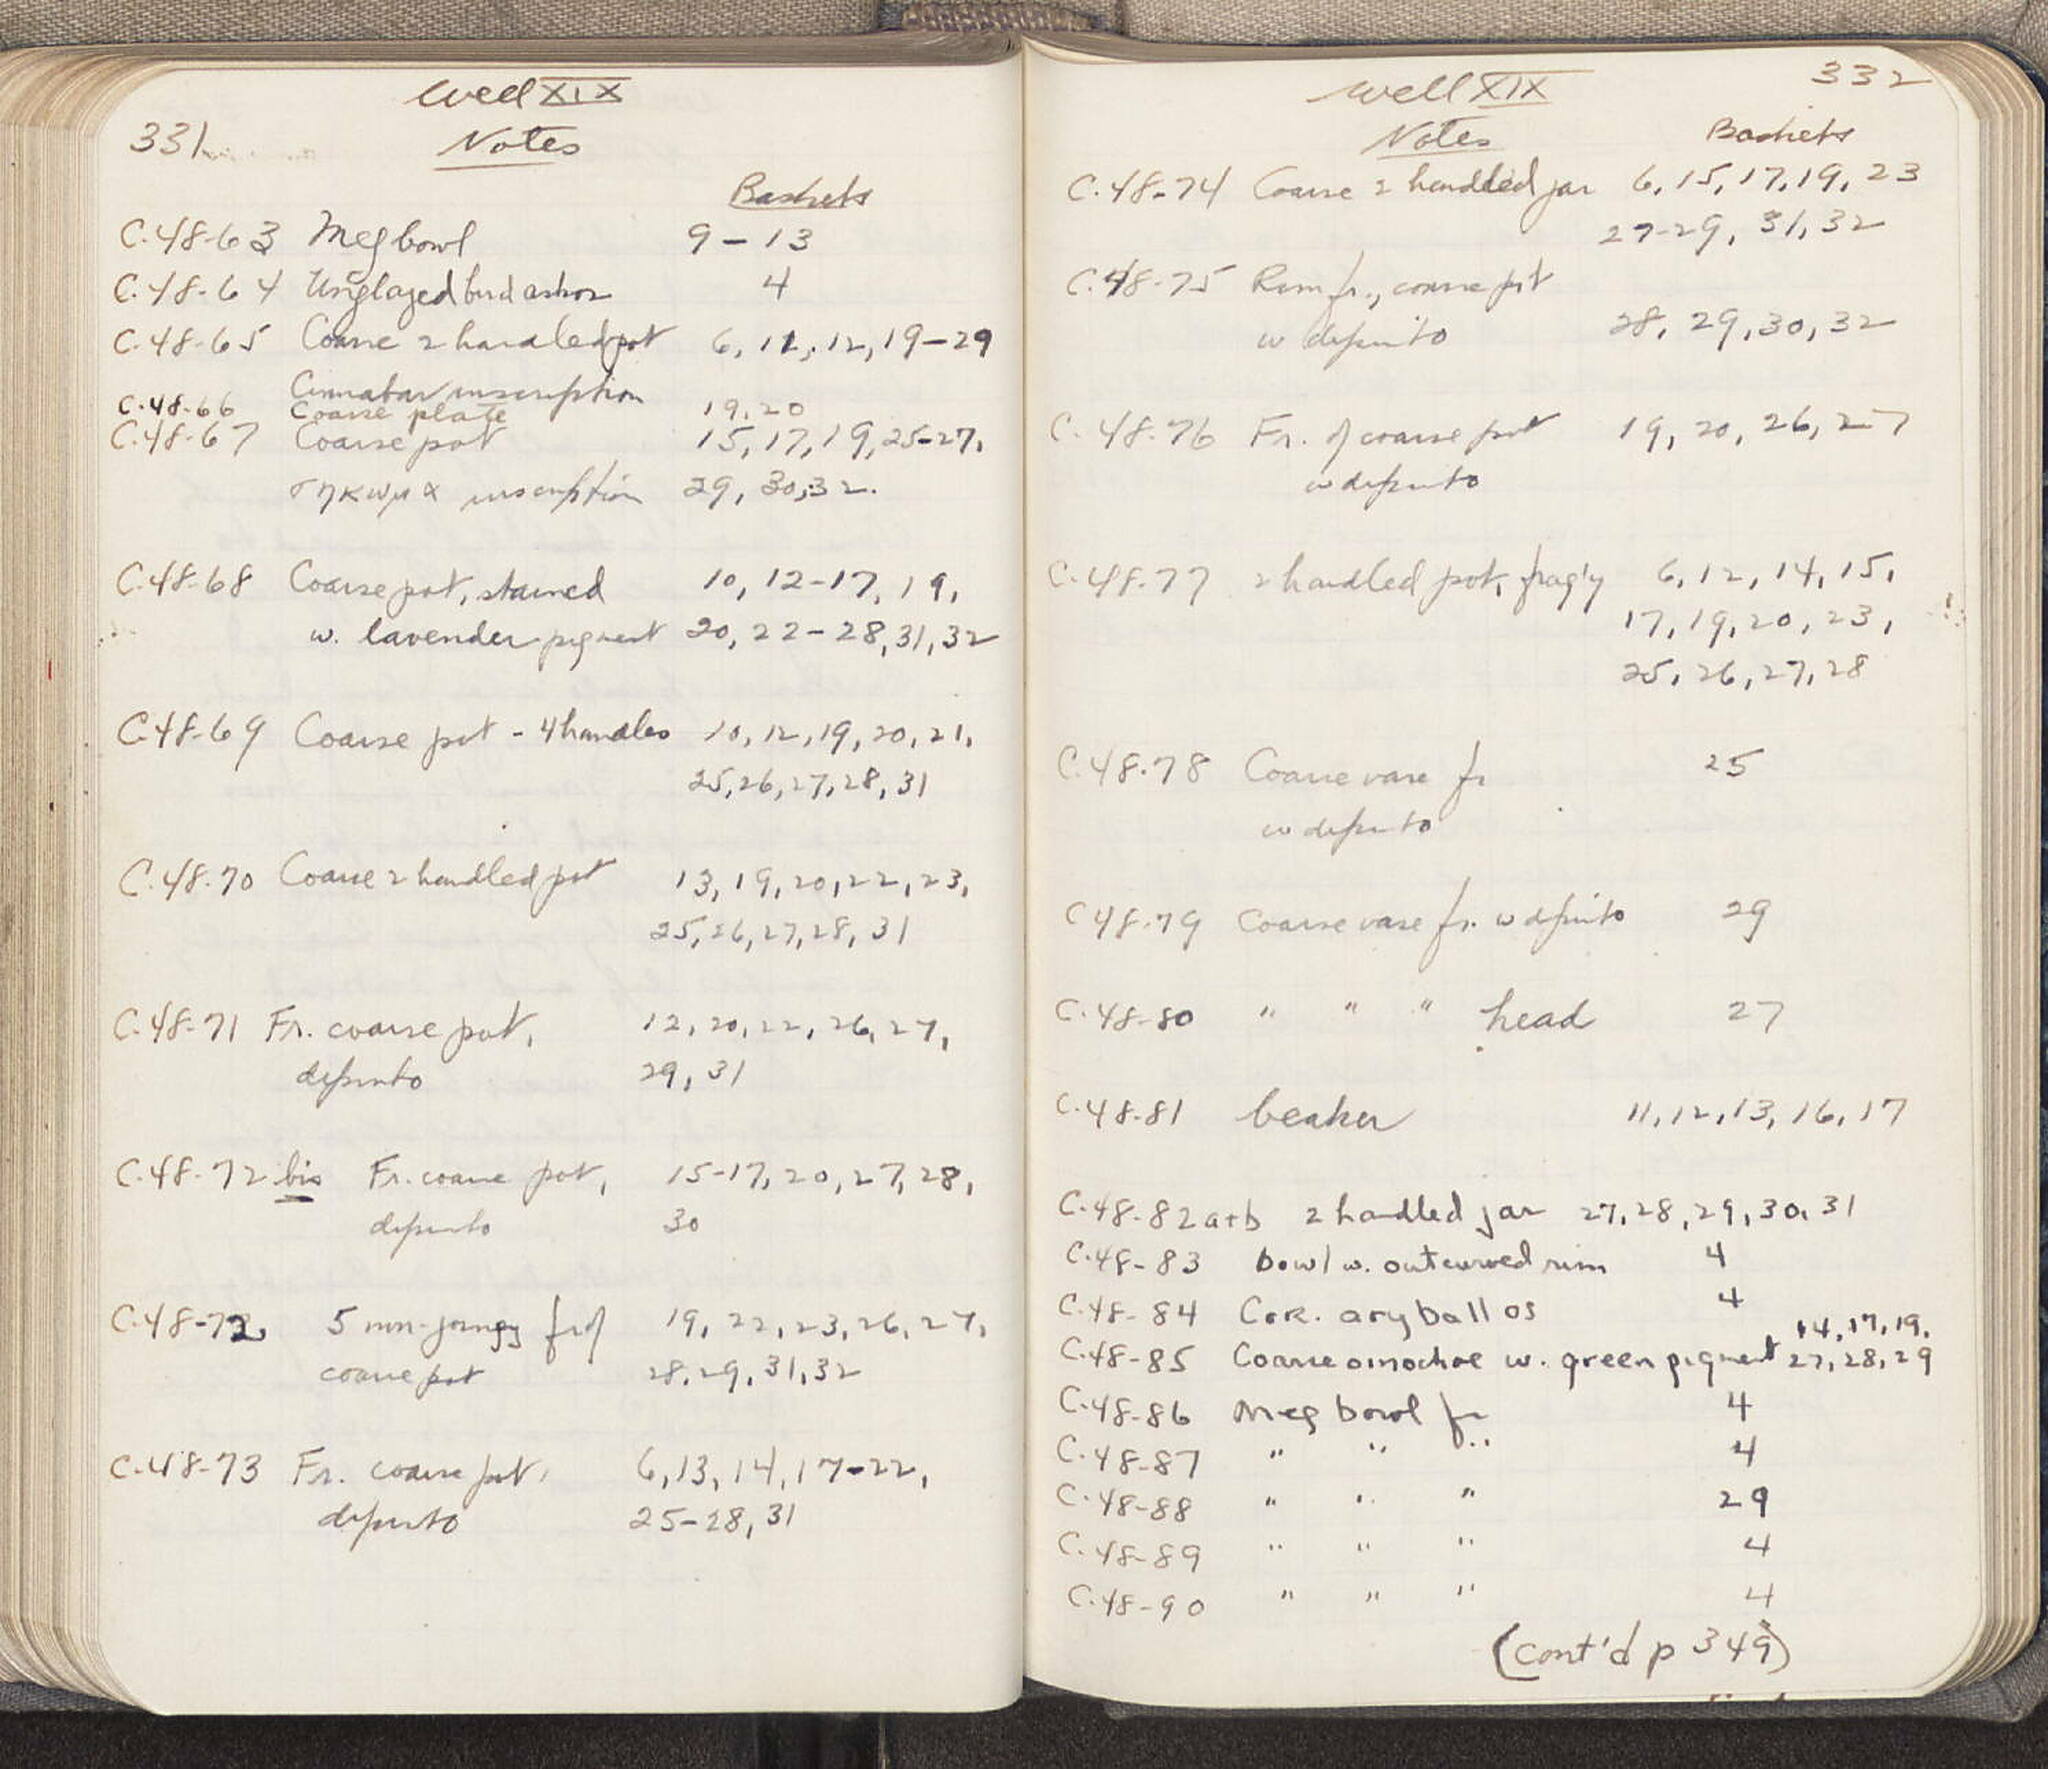 Well XIX
331
Notes
Baskets
C-48-63 Meg bowl 9-13
C-48-64 Unglazed bird askos 4
C-48-65 Coarse 2 handled pot 6, 11, 12, 19-29
Cinnabar inscription
C-48-66 Coarse plate 19, 20
C-48-67 Coarse pot 15, 17, 19, 25-27,
σηκωμα inscription 29, 30, 32.
C-48-68 Coarse pot, stained 10, 12-17, 19,
w. lavender pigment 20, 22-28, 31, 32
C-48-69 Coarse pot - 4 handles 10, 12, 19, 20, 21,
25, 26, 27, 28, 31
C-48-70 Coarse 2 handled pot 13, 19, 20, 22, 23,
25, 26, 27, 28, 31
C-48-71 Fr. coarse pot, 12, 20, 22, 26, 27,
depinto 29, 31
C-48-72 bis Fr. coarse pot, 15-17, 20, 27, 28,
depinto 30
C-48-72 5 non-joining fr of 19, 22, 23, 26, 27,
coarse pot 28, 29, 31, 32
C-48-73 Fr. coarse pot, 6, 13, 14, 17-22,
depinto 25-28, 31
Well XIX 332
Notes Baskets
C-48-74 Coarse 2 handled jar 6, 15, 17, 19, 23
27-29, 31, 32
C-48-75 Rim fr., coarse pot
w depinto 28, 29, 30, 32
C-48-76 Fr. of coarse pot 19, 20, 26, 27
w depinto
C-48-77 2 handled pot, frag'y 6, 12, 14, 15,
17, 19, 20, 23,
25, 26, 27, 28
C-48-78 Coarse vase fr 25
w depinto
C-48-79 Coarse vase fr. w depinto 29
C-48-80 " " " head 27
C-48-81 beaker 11, 12, 13, 16, 17
C-48-82 a+b 2 handled jar 27, 28, 29, 30, 31
C-48-83 bowl w. outcurved rim 4
C-48-84 Cor. aryballos 4
14, 17, 19,
C-48-85 Coarse oinochoe w. green pigment 27, 28, 29
C-48-86 Meg bowl fr 4
C-48-87 " " " 4
C-48-88 " " " 29
C-48-89 " " " 4
C-48-90 " " " 4
(cont'd p 349)